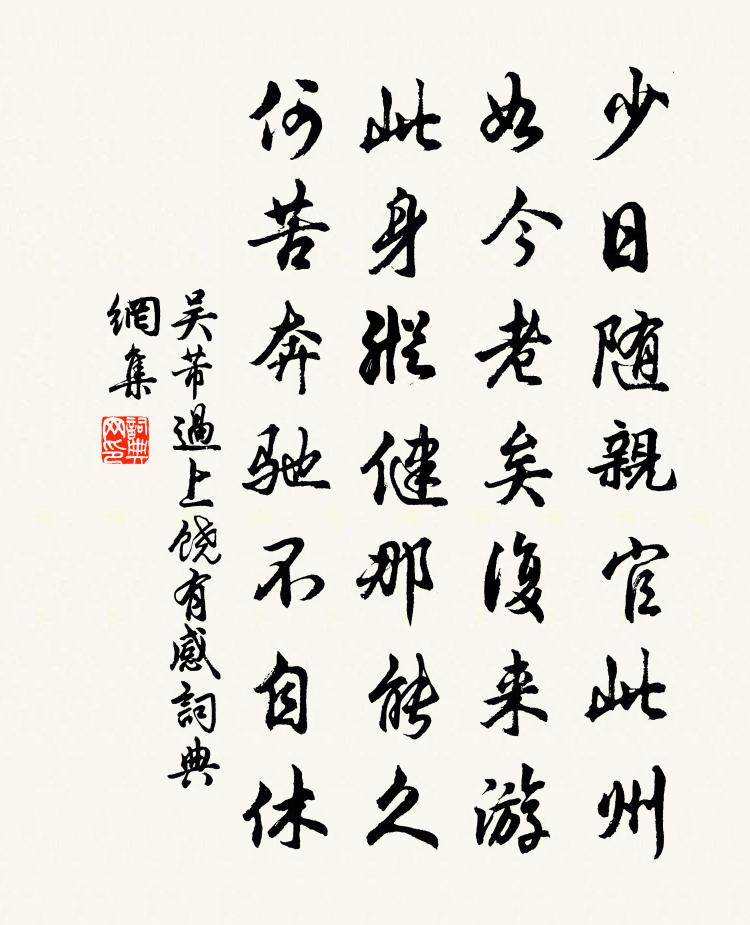 少日随親官此州
如今老矣復来游
此身縱健那能久
何苦奔馳不自休
吴芾過上饶有感詞典
網集
詞典
网印